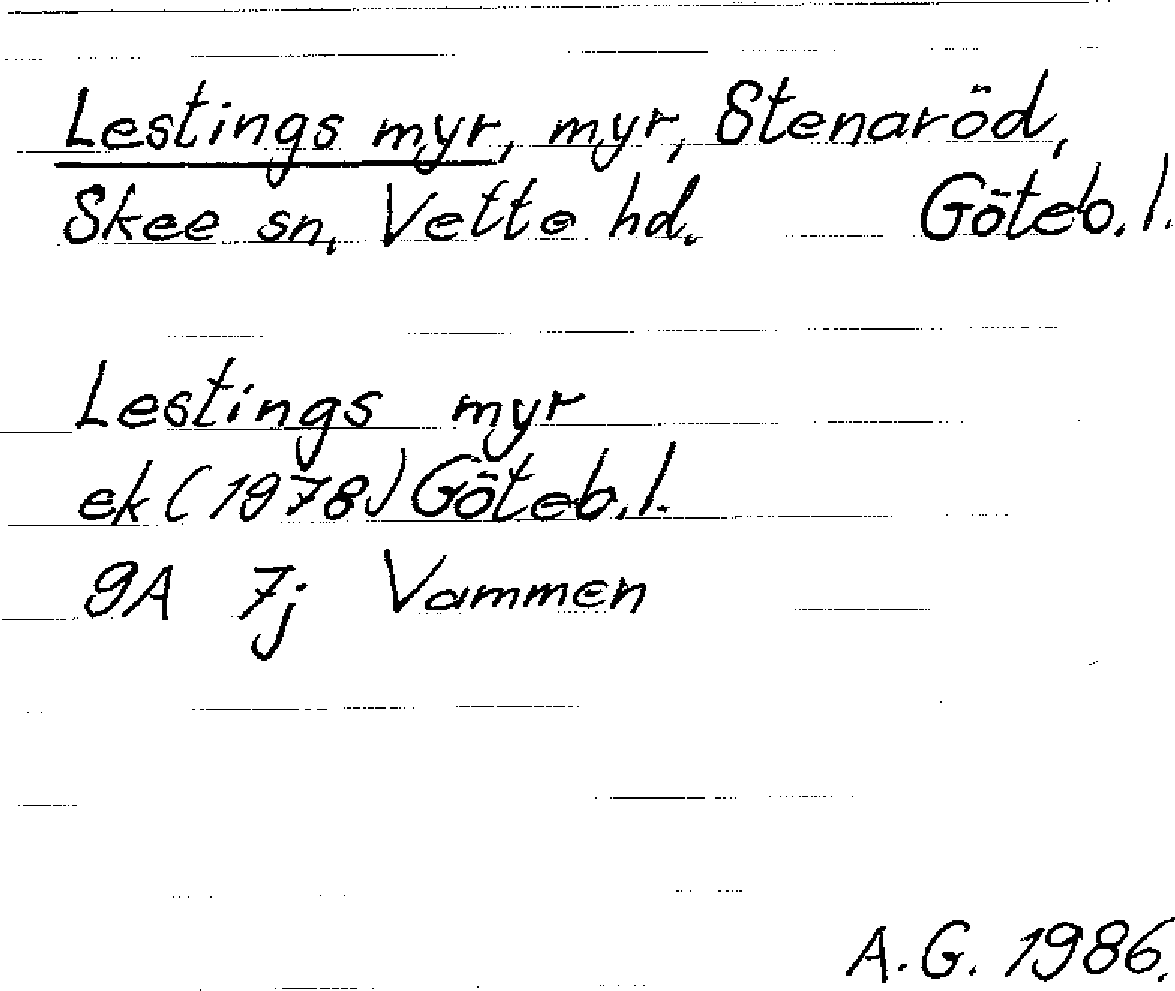 Lestings myr, myr, Stenaröd,
Skee sn, Vette hd. Göteb. l.
Lestings myr
ek (1978) Göteb. l.
9A 7j Vammen
A.G. 1986.